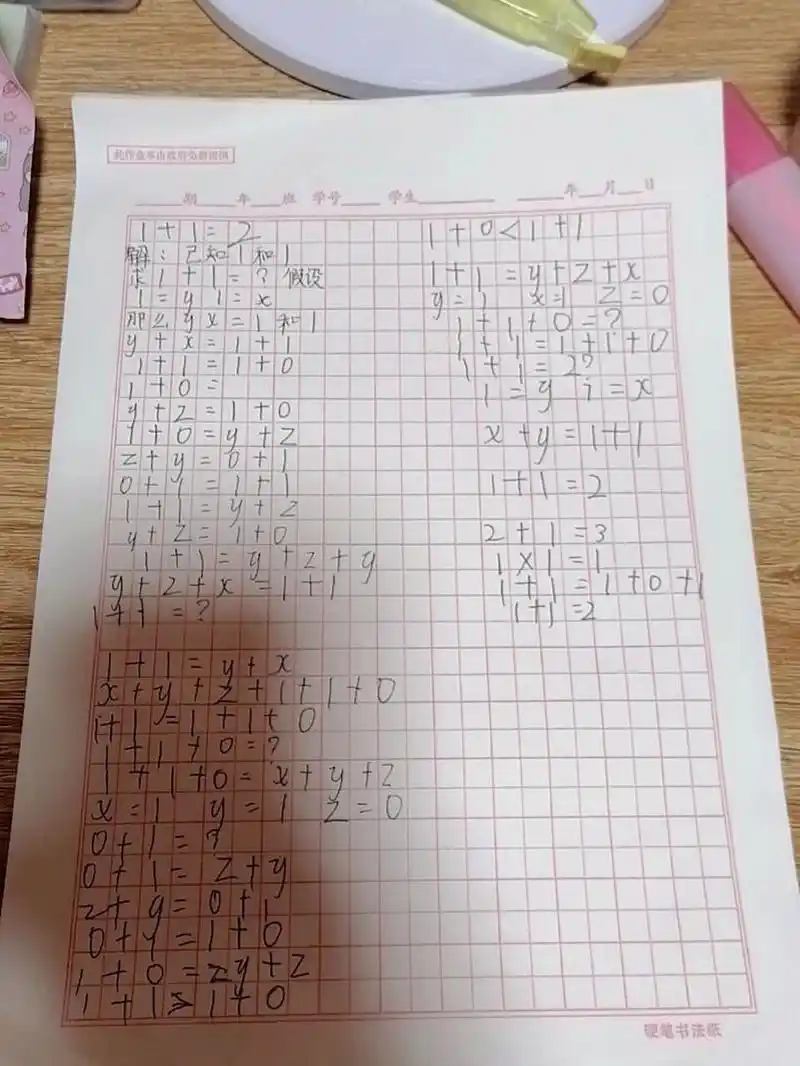 此作业本由政府免费提供
期 年 班 学号 学生 年 月 日
1+1=2
解:已知1和1
求1+1=? 假设
1=y 1=x
那么yx=1和1
y+x=1+1
1+1=1+0
1+0=
y+z=1+0
1+0=y+z
z+y=0+1
0+1=1+1
1+1=y+z
y+z=1+0
1+1=y+z+y
y+z+x=1+1
1+1=?
1+1=y+x
x+y+z+1+1+0
1+1=1+1+0
1+1+0=?
1+1+0=x+y+z
x=1 y=1 z=0
0+1=?
0+1=z+y
z+y=0+1
0+1=1+0
1+0=zy+z
1+1>1+0
1+0<1+1
1+1=y+z+x
y=1 x=1 z=0
1+1+0=?
1+1=1+1+0
1+1=2?
1=y 1=x
x+y=1+1
1+1=2
2+1=3
1x1=1
1+1=1+0+1
1+1=2
硬笔书法纸